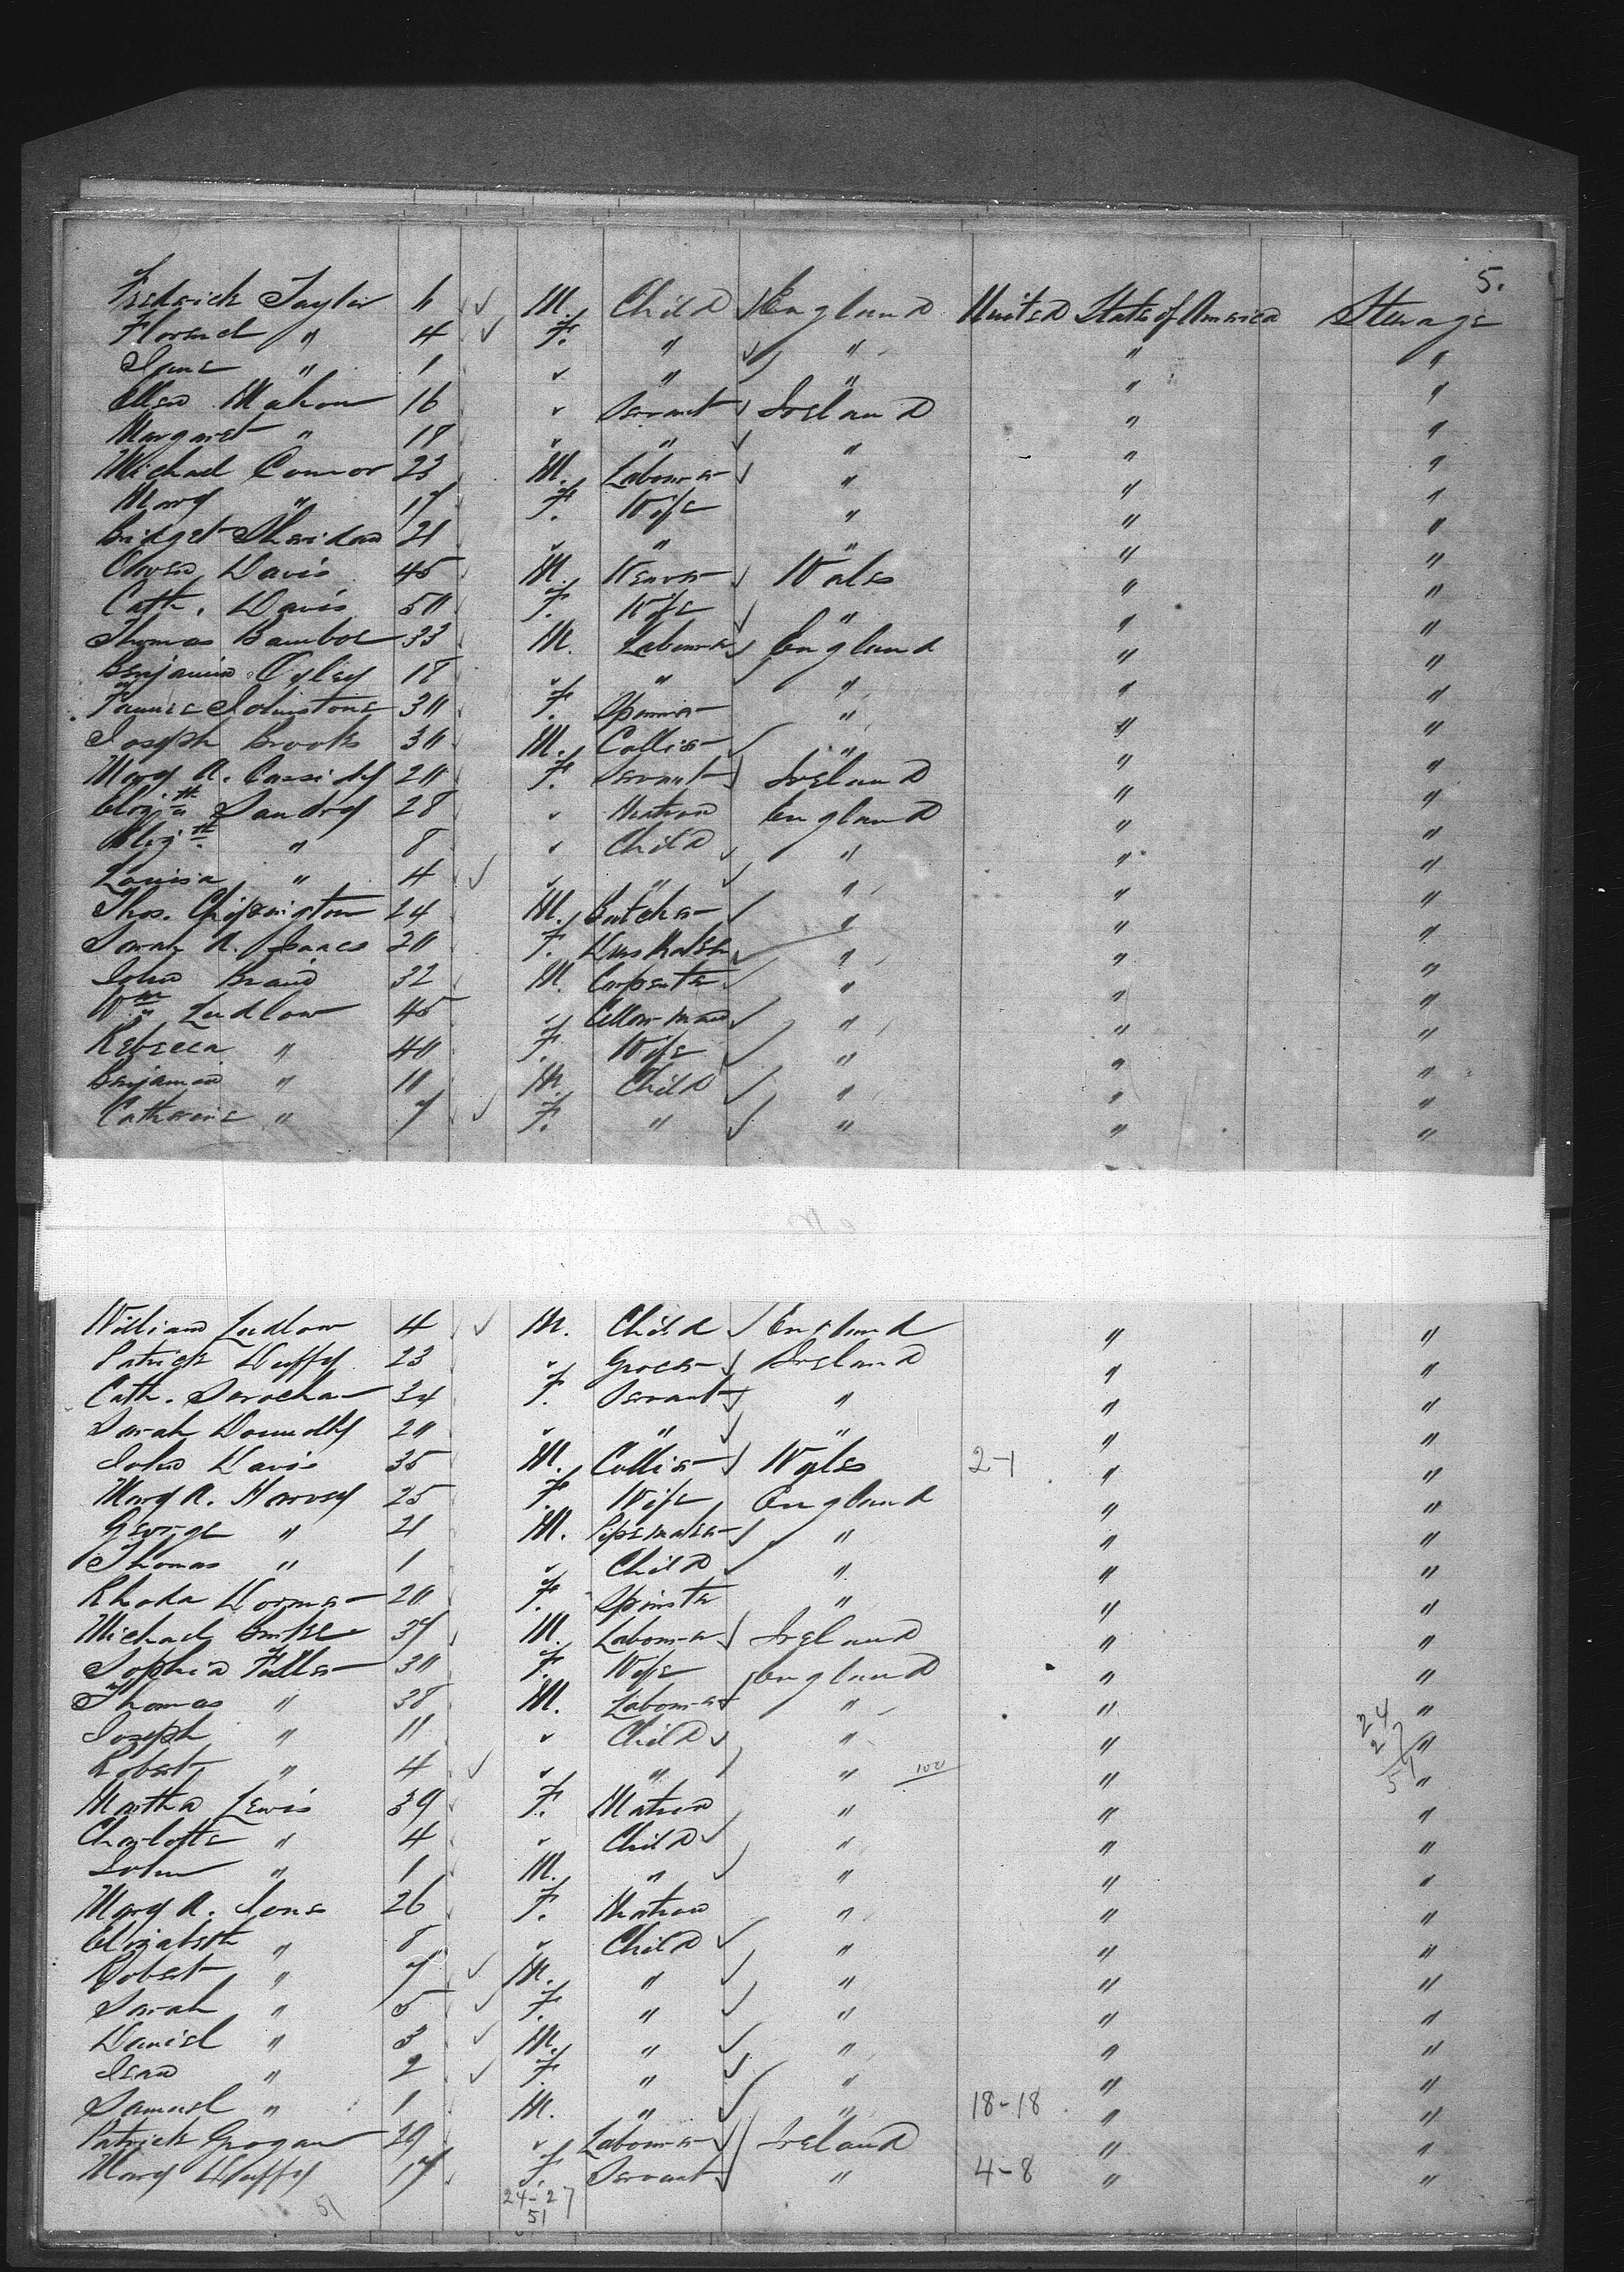 5.
Fredrick Taylor 6 M. Child England United State of America Steerage
Florence " 4 F. " " " "
Jane " 1 " " " " "
Ellen Mahon 16 " Servant Ireland " "
Margaret " 18 " " " " "
Michael Connor 23 M. Labourer " " "
Mary " 17 F. Wife " " "
Bridget Sheridan 21 " " " " "
Owen Davis 45 M. Weaver Wales " "
Cath. Davis 50 F. Wife " " "
Thomas 33 M. Labourer England " "
Benjamin 18 " " " " "
Fannie Johnstone 30 F. " " "
Joseph Brooks 30 M. Collier " " "
Mary A. Cassidy 20 F. Servant Ireland " "
Eliz.th Sandry 28 " Matron England " "
Eliz.th " 8 " Child " " "
Louisa " 4 " " " " "
Thos. 24 M. Butcher " " "
Sarah A. Isaacs 20 F. " " "
John Braid 32 M. Carpenter " " "
Wm Ludlow 45 " " " "
Rebecca " 40 F. Wife " " "
Benjamin " 10 M. Child " " "
Catherine " 7 F. " " " "
William Ludlow 4 M. Child England " "
Patrick Duffy 23 " Grocer Ireland " "
Cath. 34 F. Servant " " "
Sarah Donnelly 20 " " " " "
John Davis 35 M. Collier Wales 2-1 " "
Mary A. Harvey 25 F. Wife England " "
George " 21 M. Pipemaker " " "
Thomas " 1 " Child " " "
Rhoda Dormer 20 F. Spinster " " "
Michael Burke 37 M. Labourer Ireland " "
Sophia Fuller 30 F. Wife England " "
Thomas " 38 M. Labourer " " "
Joseph " 11 " Child " " "
Robert " 4 " " " 100 " "
24
27
51
Martha Lewis 39 F. Matron " " "
Charlotte " 4 " Child " " "
John " 1 M. " " " "
Mary A. Jones 26 F. Matron " " "
Elizabeth " 8 " Child " " "
Robert " 7 M. " " " "
Sarah " 5 F. " " " "
Daniel " 3 M. " " " "
" 2 F. " " " "
Samuel " 1 M. " " 18-18 " "
Patrick Grogan 29 " Labourer Ireland " "
Mary Duffy 17 F. Servant " 4-8 " "
51 24-27
51